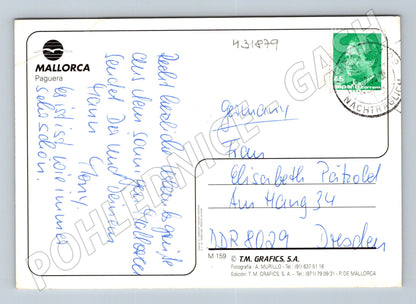 431879
MALLORCA
Paguera
Recht herzliche Urlaubsgrüße
aus dem sonnigen Mallorca
sendet Dir und Deinem
Mann
Es ist wie immer
sehr schön.
45
España correos
NACHTRÄGLICH
Germany
Frau
Elisabeth Pätzold
Am Hang 34
DDR 8029 Dresden
M 159
© T.M. GRAFICS, S.A.
Fotografía: A. MURILLO - Tel. (91) 637 61 16
Edición: T.M. GRAFICS, S.A. - Tel. (971) 79 09 31 - P. DE MALLORCA
POHLEDNICE - GASH